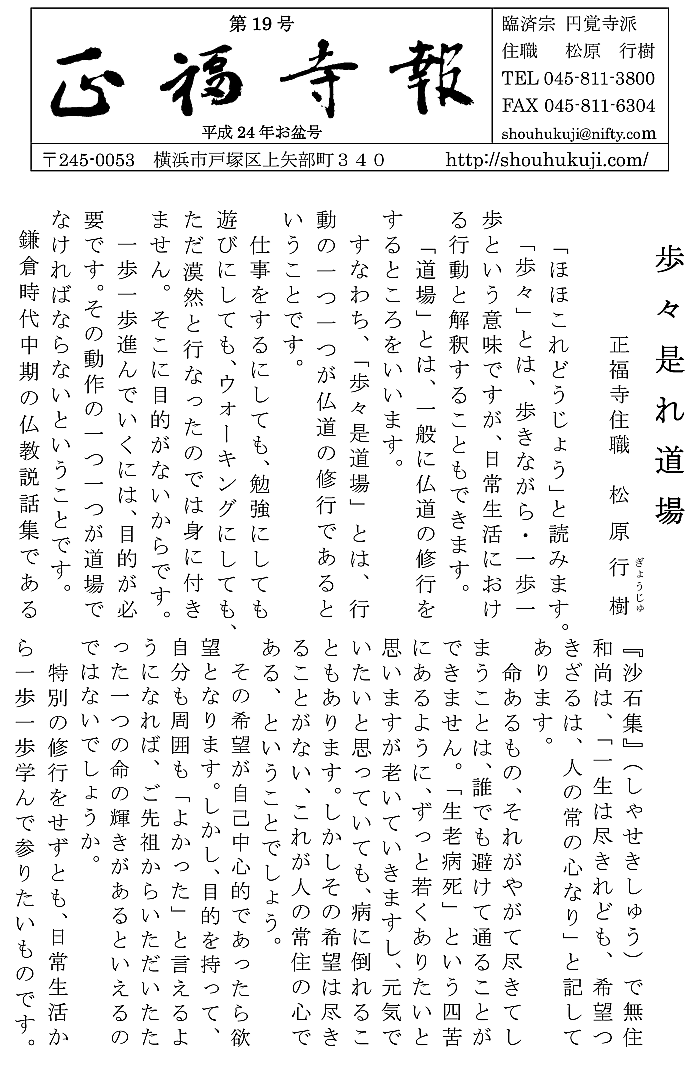 第19号
正福寺報
平成24年お盆号
臨済宗 円覚寺派
住職 松原 行樹
TEL 045-811-3800
FAX 045-811-6304
shouhukuji@nifty.com
〒245-0053 横浜市戸塚区上矢部町３４０ http://shouhukuji.com/
歩々是れ道場
正福寺住職 松原 行樹
ぎょうじゅ
「ほほこれどうじょう」と読みます。
「歩々」とは、歩きながら・一歩一
歩という意味ですが、日常生活におけ
る行動と解釈することもできます。
「道場」とは、一般に仏道の修行を
するところをいいます。
すなわち、「歩々是道場」とは、行
動の一つ一つが仏道の修行であると
いうことです。
仕事をするにしても、勉強にしても
遊びにしても、ウォーキングにしても、
ただ漠然と行なったのでは身に付き
ません。そこに目的がないからです。
一歩一歩進んでいくには、目的が必
要です。その動作の一つ一つが道場で
なければならないということです。
鎌倉時代中期の仏教説話集である
『沙石集』（しゃせきしゅう）で無住
和尚は、「一生は尽きれども、希望つ
きざるは、人の常の心なり」と記して
あります。
命あるもの、それがやがて尽きてし
まうことは、誰でも避けて通ることが
できません。「生老病死」という四苦
にあるように、ずっと若くありたいと
思いますが老いていきますし、元気で
いたいと思っていても、病に倒れるこ
ともあります。しかしその希望は尽き
ることがない、これが人の常住の心で
ある、ということでしょう。
その希望が自己中心的であったら欲
望となります。しかし、目的を持って、
自分も周囲も「よかった」と言えるよ
うになれば、ご先祖からいただいたた
った一つの命の輝きがあるといえるの
ではないでしょうか。
特別の修行をせずとも、日常生活か
ら一歩一歩学んで参りたいものです。